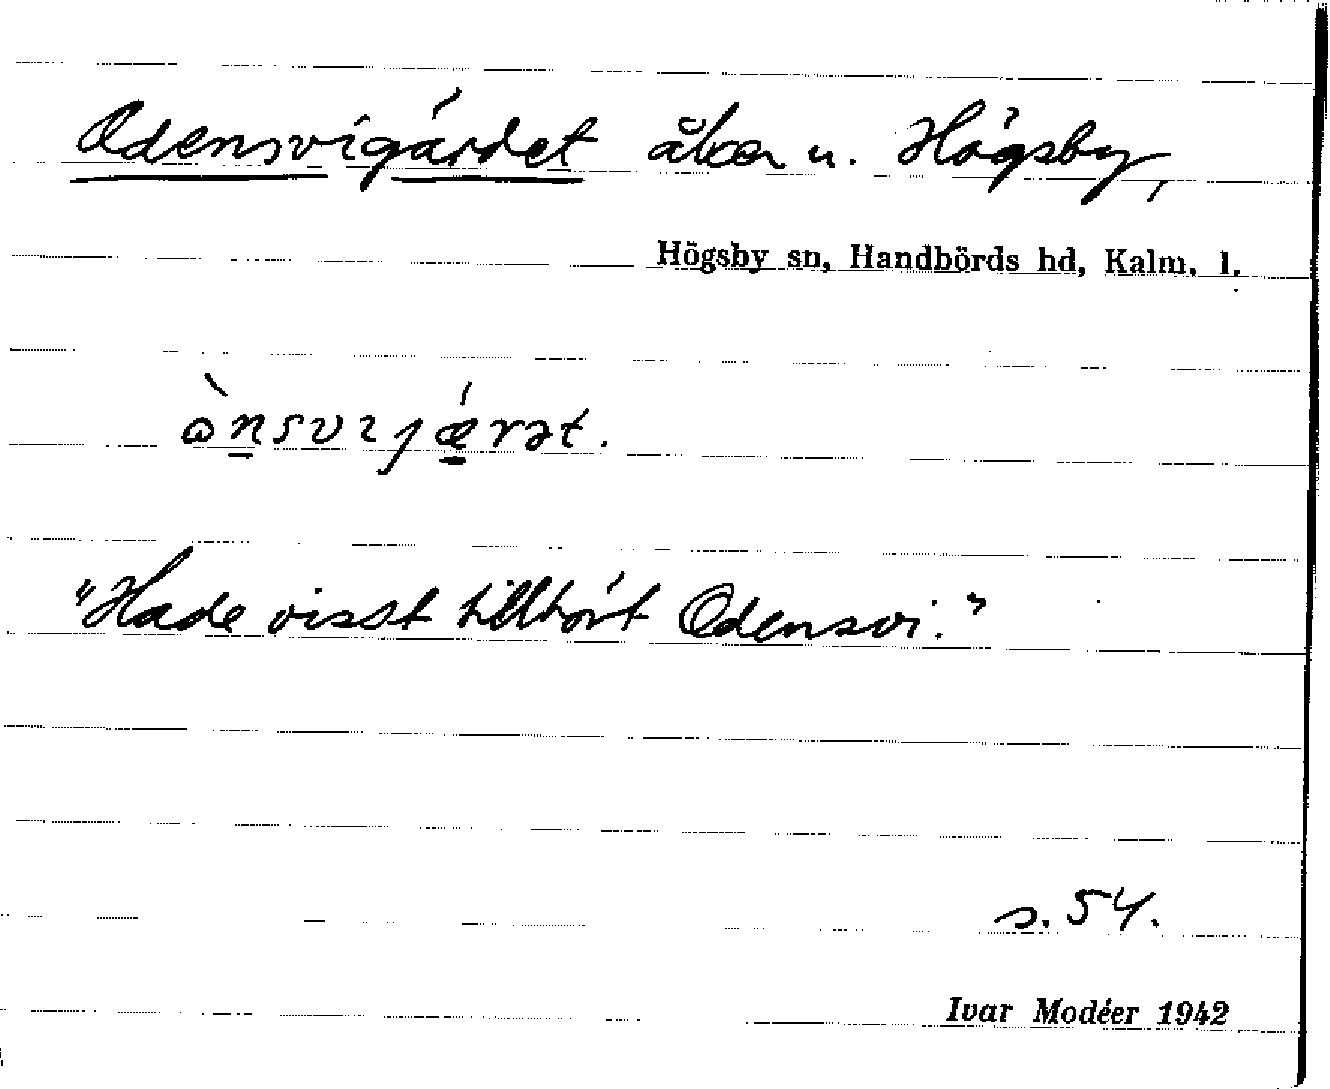 Odensvigärdet åker u. Högsby,
Högsby sn, Handbörds hd, Kalm. l.
"Hade visst tillhört Odensvi."
s. 54.
Ivar Modéer 1942